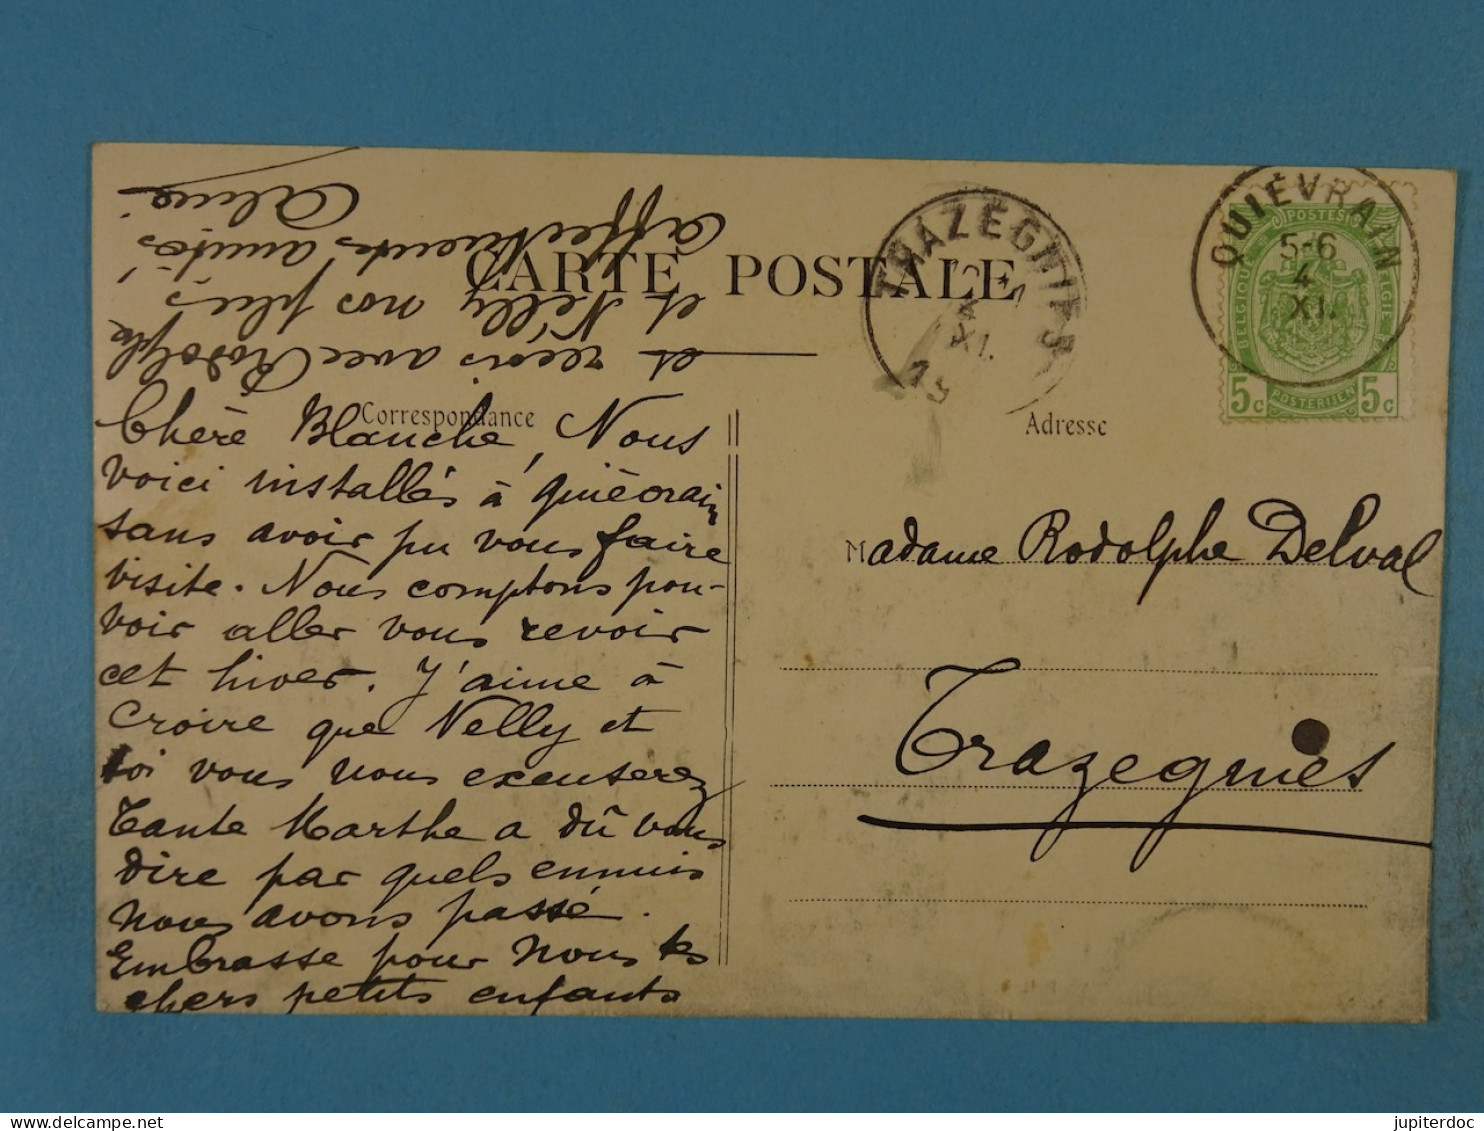 CARTE POSTALE
Correspondance
Adresse
Chère Blanche, Nous
voici installés à Quiévrain
sans avoir pu vous faire
visite. Nous comptons pou-
voir aller vous revoir
cet hiver. J'aime à
croire que Nelly et
toi vous nous excuserez
Tante Marthe a dû vous
dire par quels ennuis
nous avons passé.
Embrasse pour nous ts
chers petits enfants
et reçois avec Rodolphe
et Nelly nos plus
affectueuses amitiés
Madame Rodolphe Delval
Trazegnies
TRAZEGNIES
XI.
QUIÉVRAIN
5-6
4
XI.
POSTES
BELGIQUE
BELGIE
5c POSTERIJEN 5c
delcampe.net
jupiterdoc